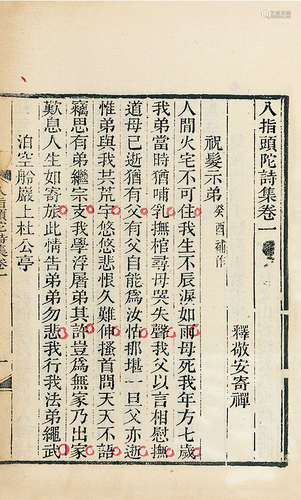 八指頭陀詩集卷一
釋敬安寄禪
祝髮示弟 癸酉補作
人間火宅不可住我生不辰淚如雨母死我年方七歲
我弟當時猶哺乳撫棺尋母哭失聲我父以言相慰撫
道母已逝猶有父有父自能為汝怙那堪一旦父亦逝
惟弟與我共荒宇悠悠悲恨久難伸搔首問天天不語
竊思有弟繼宗支我學浮屠弟其許豈為無家乃出家
歎息人生如寄旅此情告弟弟勿悲我行我法弟繩武
泊空舲巖上杜公亭
八指頭陀詩集卷一
一